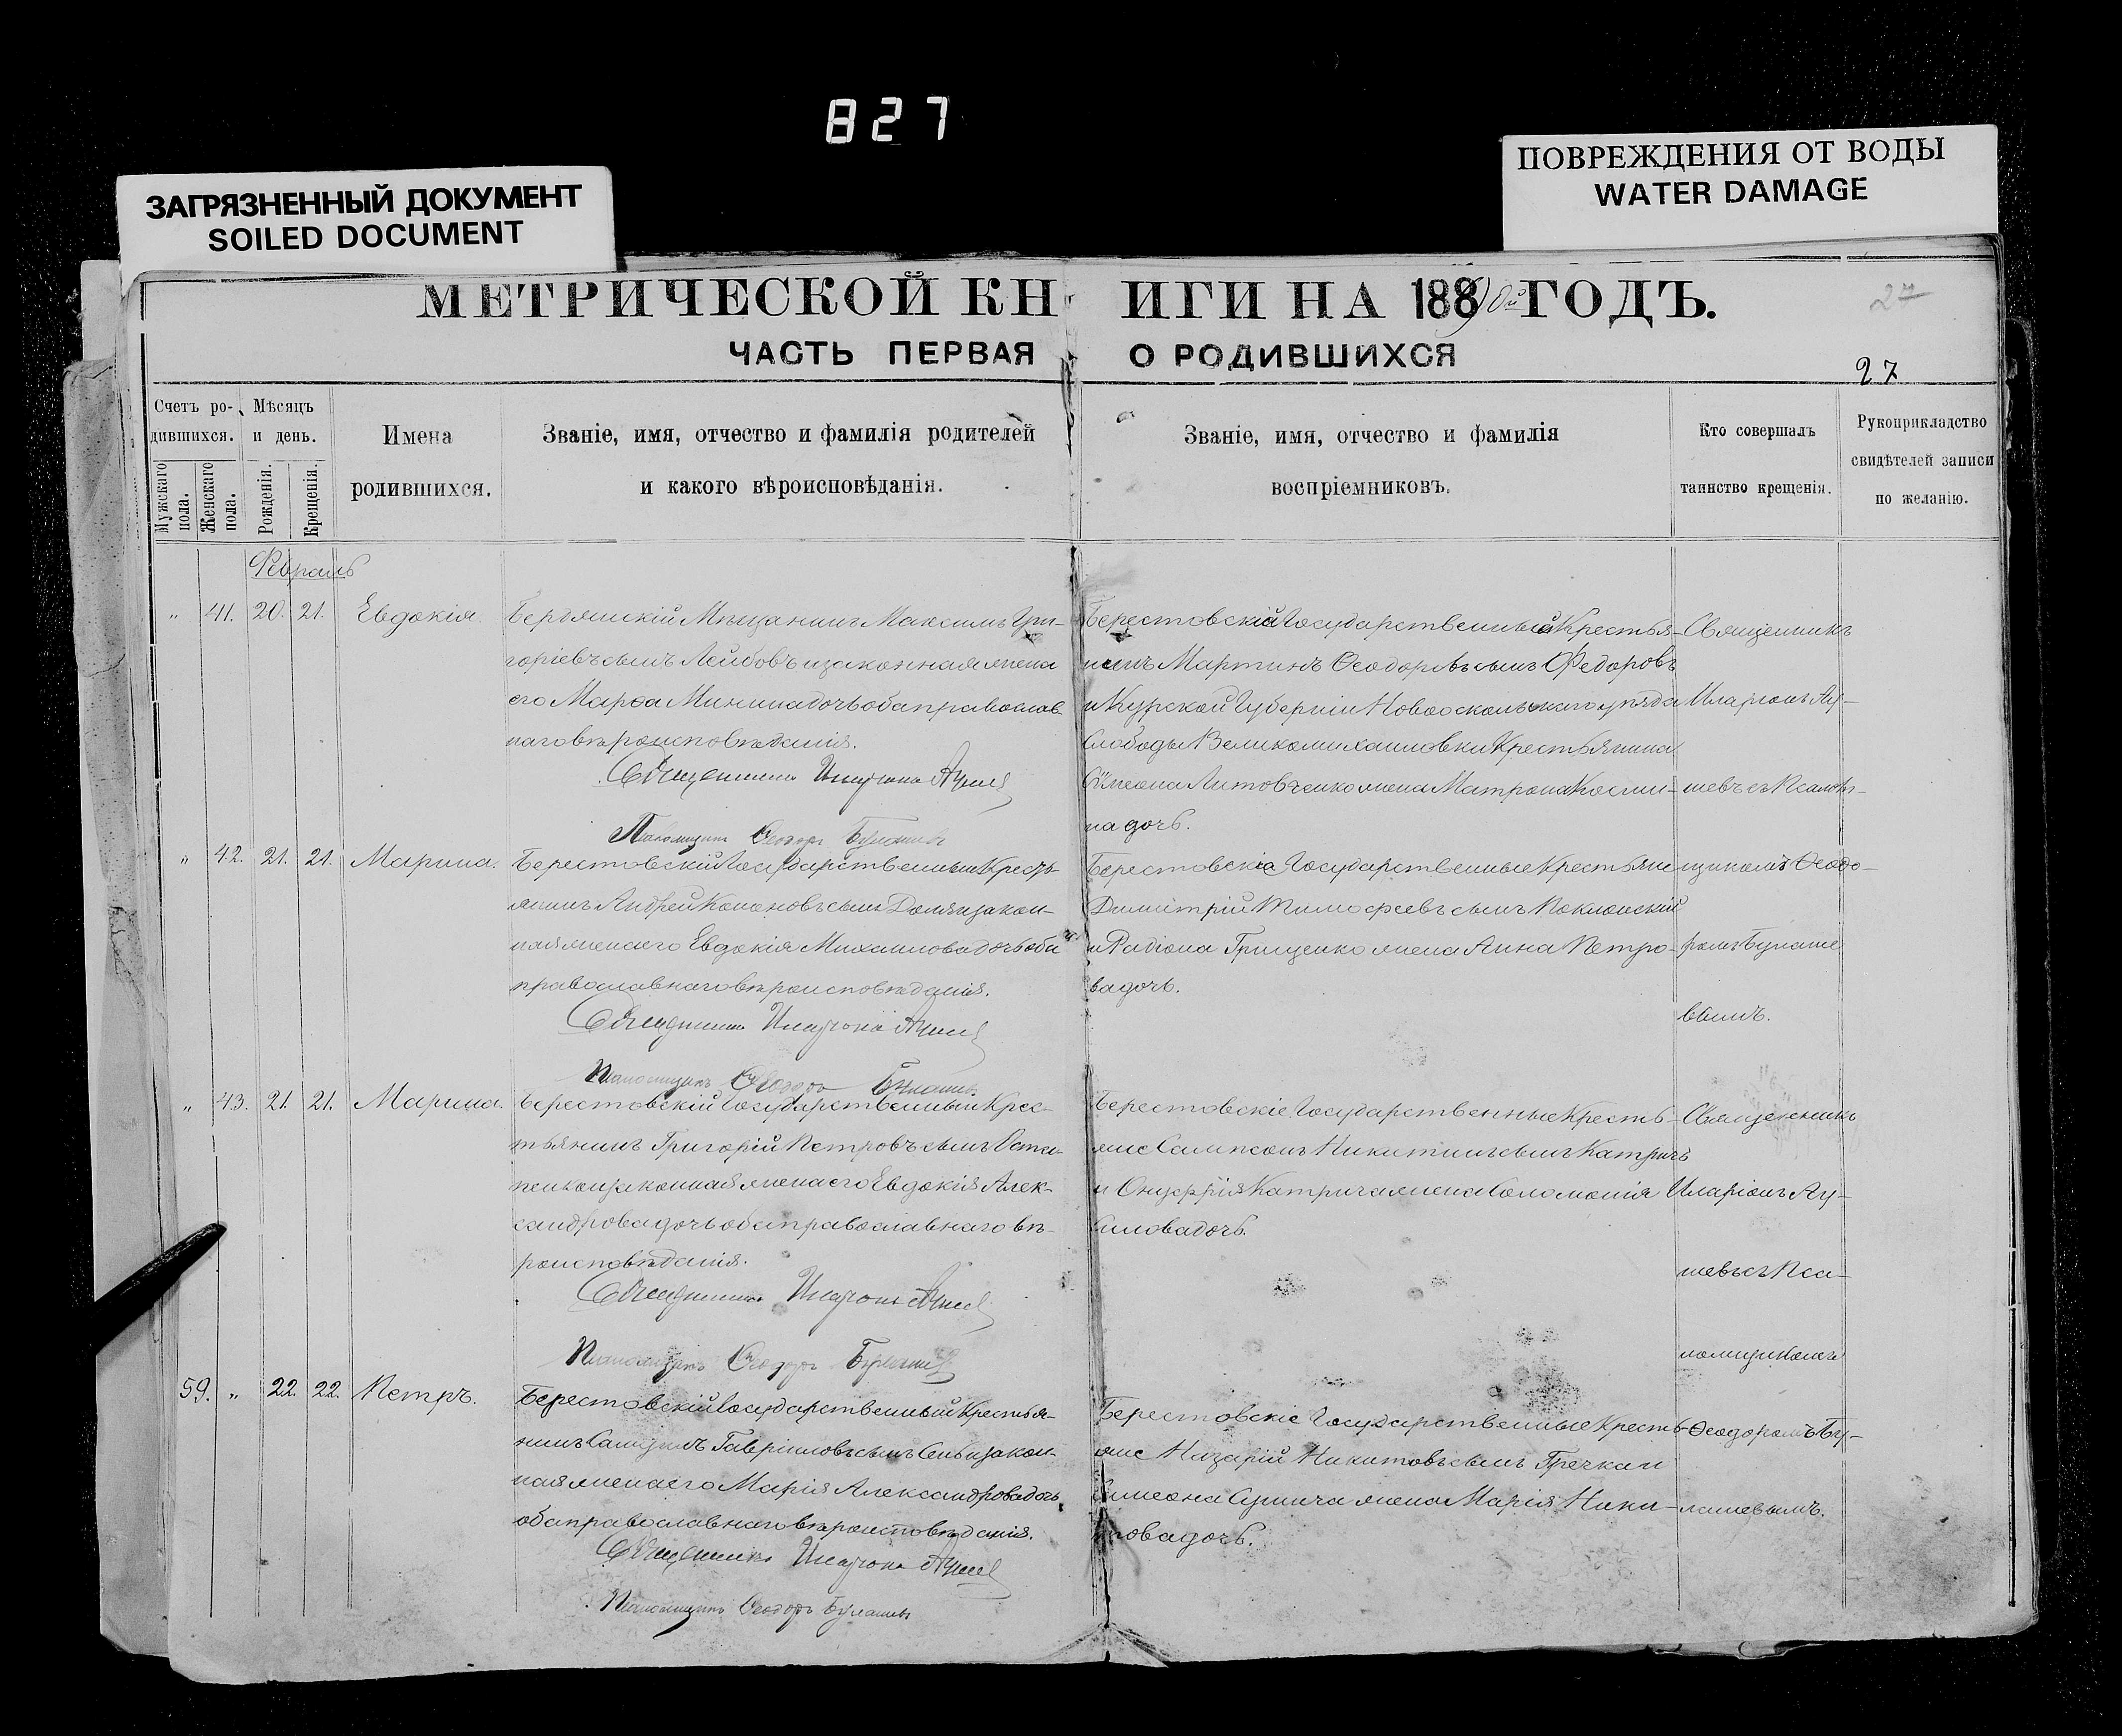 827
ЗАГРЯЗНЕННЫЙ ДОКУМЕНТ
SOILED DOCUMENT
ПОВРЕЖДЕНИЯ ОТ ВОДЫ
WATER DAMAGE
МЕТРИЧЕСКОЙ КНИГИ НА 1889 ГОДЪ.
27
ЧАСТЬ ПЕРВАЯ О РОДИВШИХСЯ
27
Счетъ ро-
дившихся.
Мужскаго пола.
Женскаго пола.
Мѣсяцъ
и день.
Рожденія.
Крещенія.
Имена
родившихся.
Званіе, имя, отчество и фамилія родителей
и какого вѣроисповѣданія.
Званіе, имя, отчество и фамилія
воспріемниковъ.
Кто совершалъ
таинство крещенія.
Рукоприкладство
свидѣтелей записи
по желанію.
Февраль
" 41. 20. 21. Евдокія
Бердянскій Мѣщанинъ Максимъ Гри-
горіевъ сынъ Лейбовъ и законная жена
его Марѳа Минина дочь оба православ-
наго вѣроисповѣданія.
Священникъ Иларіонъ
Псаломщикъ Ѳеодоръ Булашевъ
Берестовскій Государственный Крестья-
нинъ Мартинъ Ѳеодоровъ сынъ Федоровъ
и Курской Губерніи Новооскольскаго уѣзда
Слободы Великомихаиловки Крестьянина
Сѵмеона Литовченко жена Матрона Косми-
на дочь.
Священникъ
Иларіонъ Ау-
шевъ съ Псалом-
" 42. 21. 21. Марина.
Берестовскій Государственный Кресть-
янинъ Андрей Кононовъ сынъ Доля и закон-
ная жена его Евдокія Михаилова дочь оба
православнаго вѣроисповѣданія.
Священникъ Иларіонъ
Псаломщикъ Ѳеодоръ Булашевъ
Берестовскіе Государственные Крестьяне
Димитрій Тимофеевъ сынъ Поклонскій
и Радіона Грищенко жена Анна Петро-
ва дочь.
щикомъ Ѳеодо-
ромъ Булаше
вымъ.
" 43. 21. 21. Марина.
Берестовскій Государственный Крес-
тьянинъ Григорій Петровъ сынъ Оста-
пенко и законная жена его Евдокія Алек-
сандрова дочь оба православнаго вѣ-
роисповѣданія.
Священникъ Иларіонъ
Псаломщикъ Ѳеодоръ Булашевъ
Берестовскіе Государственные Кресть-
яне Сампсонъ Никитинъ сынъ Катричъ
и Онуфрія Катрича жена Соломонія
Силова дочь.
Священникъ
Иларіонъ Ау-
шевъ съ Пса-
ломщикомъ
59. " 22. 22. Петръ.
Берестовскій Государственный Крестья-
нинъ Самуилъ Гавріиловъ сынъ и закон-
ная жена его Марія Александрова дочь
оба православнаго вѣроисповѣданія.
Священникъ Иларіонъ
Псаломщикъ Ѳеодоръ Булашевъ
Берестовскіе Государственные Кресть-
яне Назарій Никитовъ сынъ Гречка и
Симеона жена Марія Ники-
това дочь.
Ѳеодоромъ Бу-
лашевымъ.